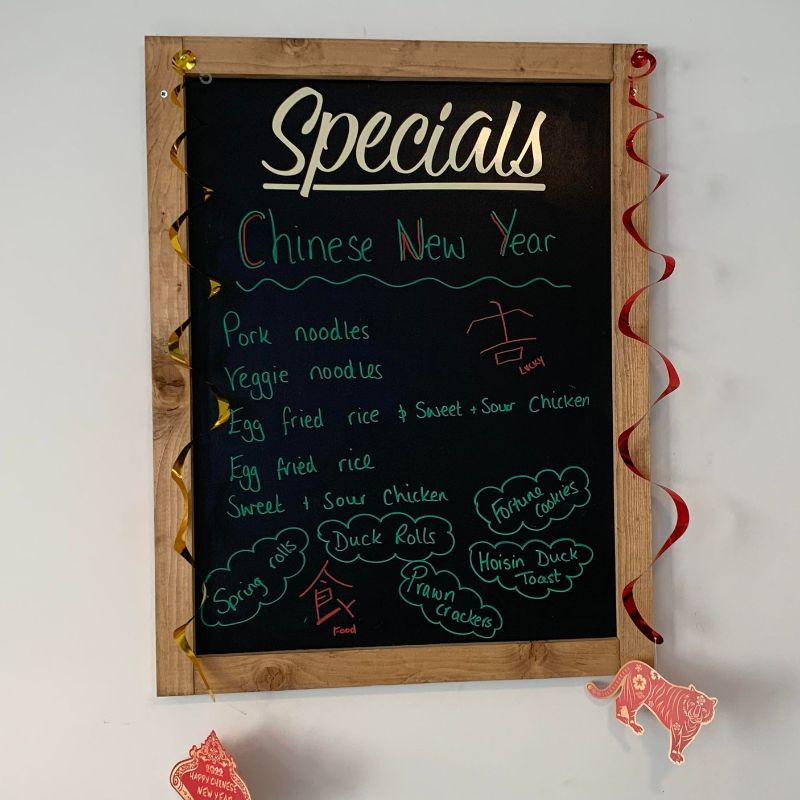 Specials
Chinese New Year
Pork noodles
Veggie noodles
吉
Lucky
Egg fried rice & Sweet + Sour Chicken
Egg fried rice
Sweet + Sour Chicken
Fortune
cookies
Duck Rolls
Hoisin Duck
Toast
Spring rolls
Prawn
crackers
食
Food
2022
HAPPY CHINESE
NEW YEAR